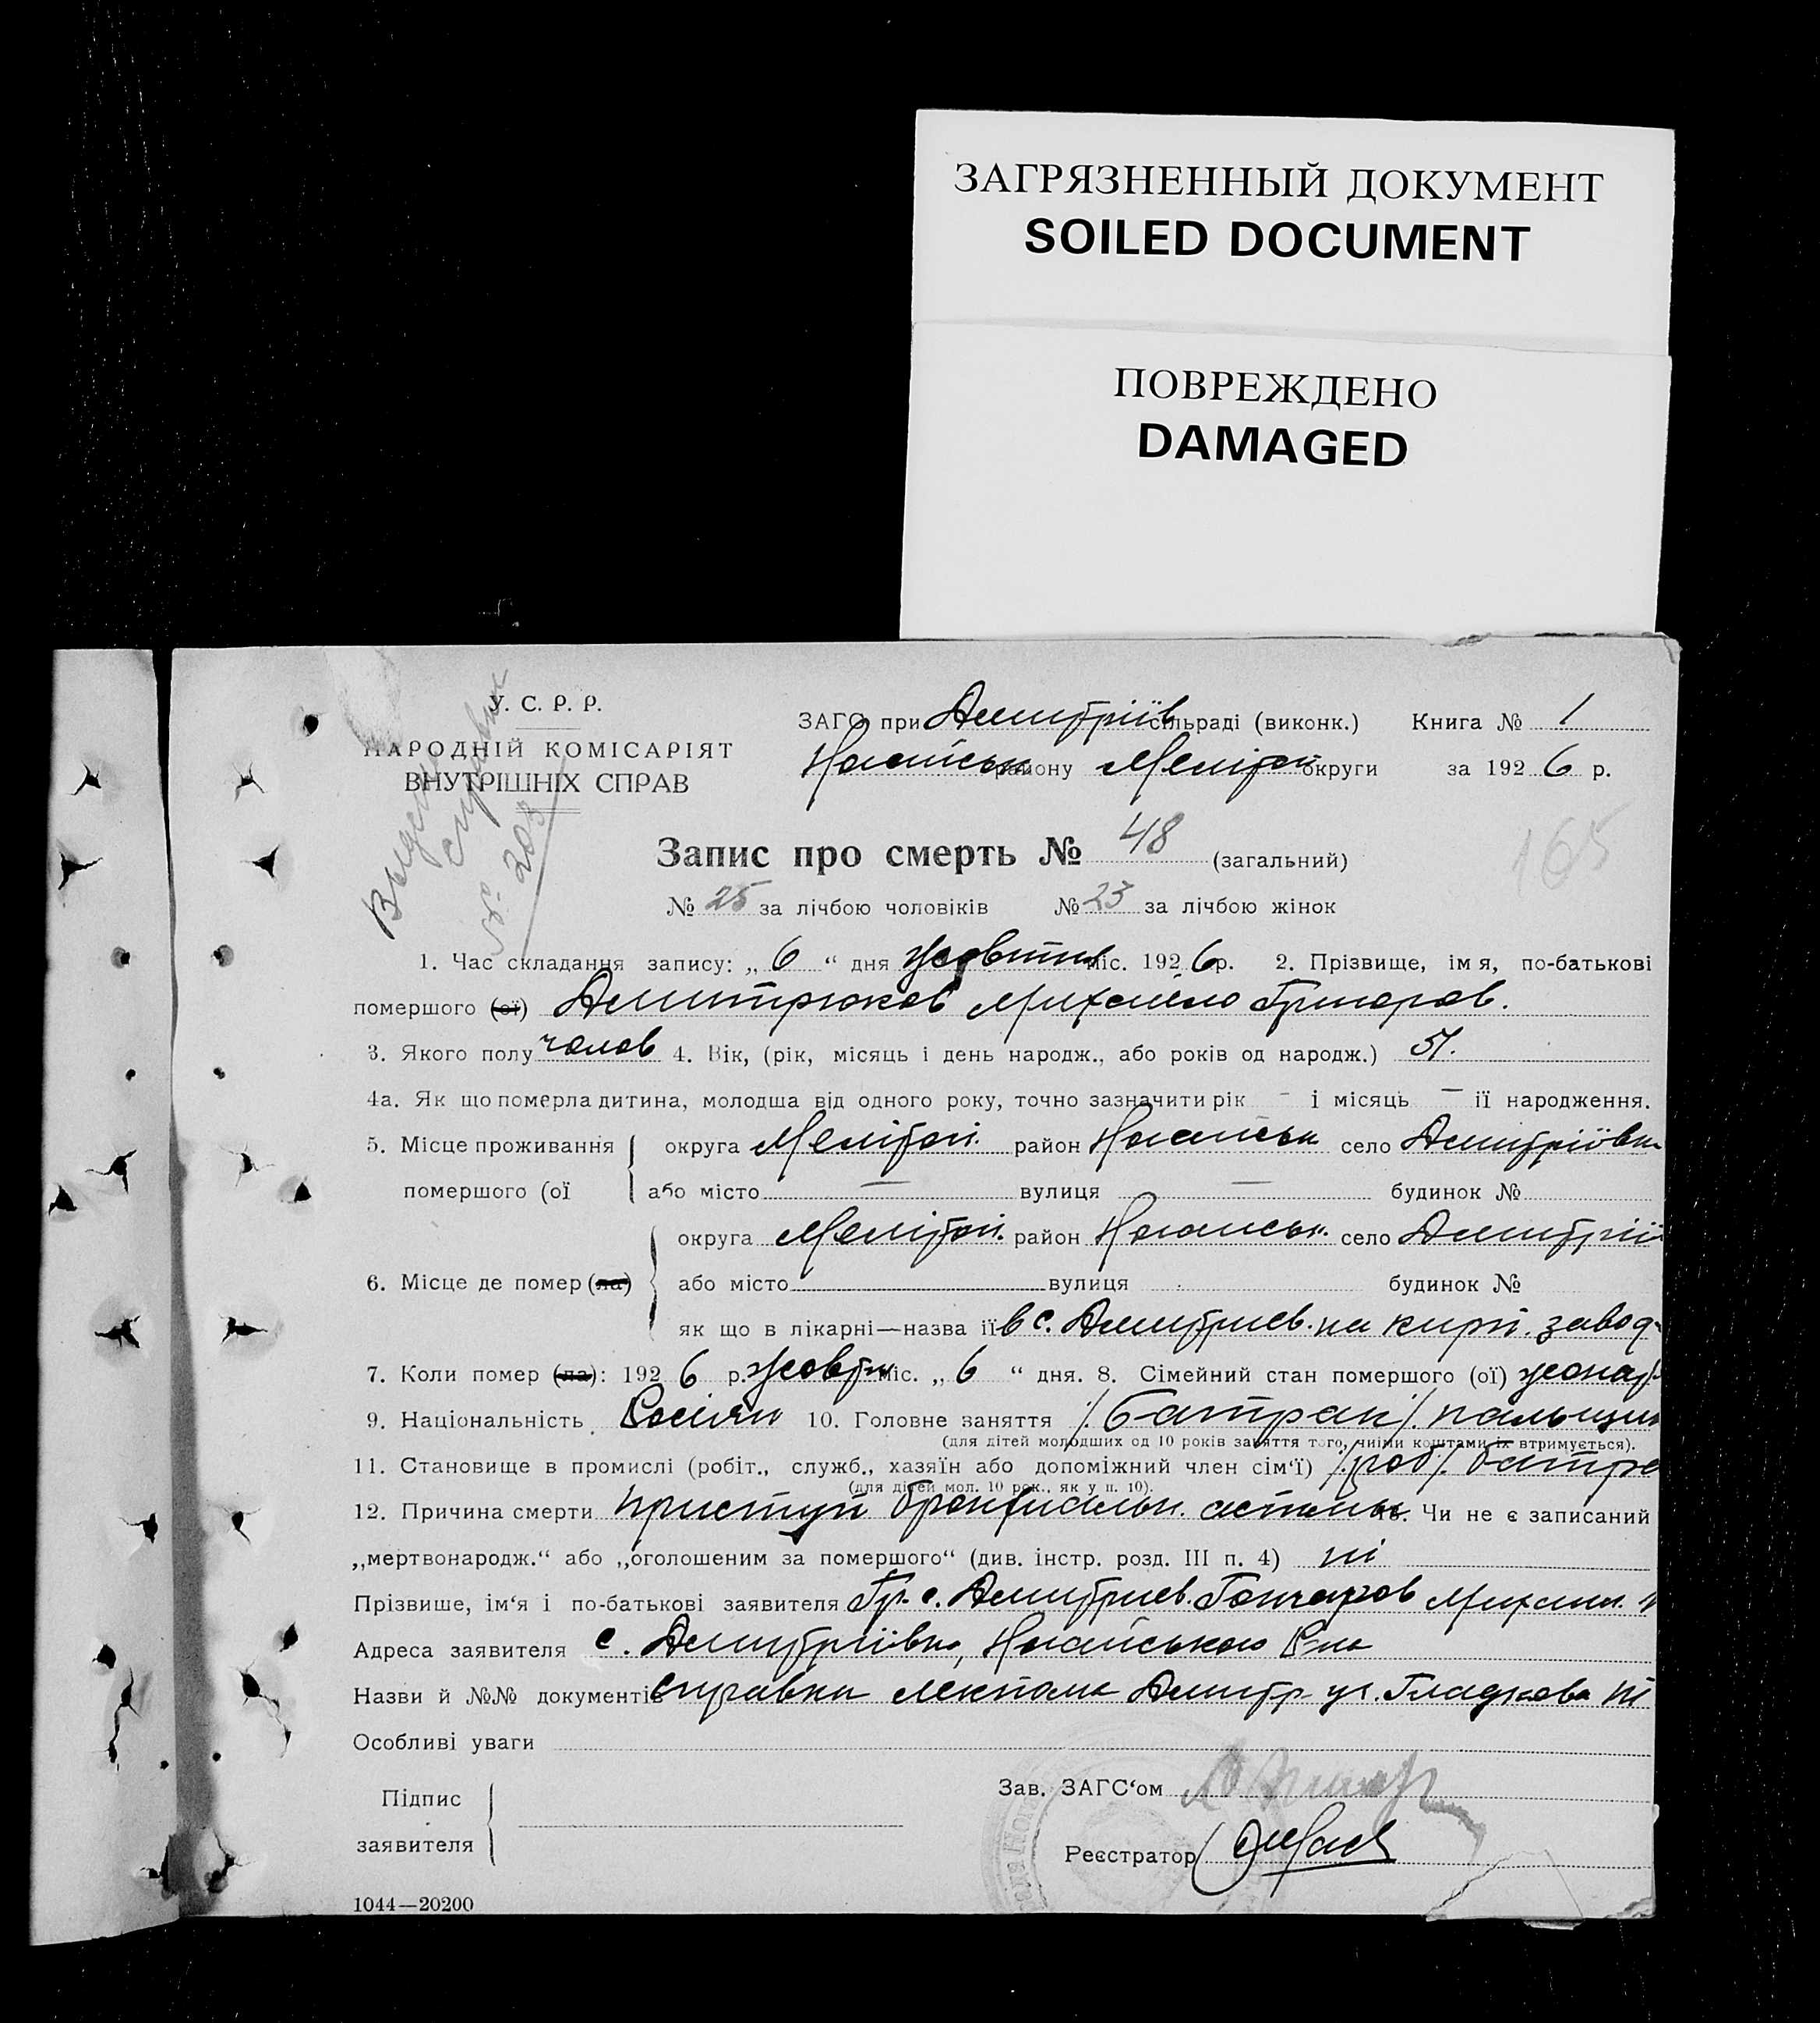 ЗАГРЯЗНЕННЫЙ ДОКУМЕНТ
SOILED DOCUMENT
ПОВРЕЖДЕНО
DAMAGED
У. С. Р. Р.
НАРОДНІЙ КОМІСАРІЯТ
ВНУТРІШНІХ СПРАВ
№ 203
ЗАГС при Дмитріїв сільраді (виконк.) Книга № 1
Ногайськ району Мелітоп округи за 1926 р.
Запис про смерть № 48 (загальний)
165
№ 25 за лічбою чоловіків № 23 за лічбою жінок
1. Час складання запису: „ 6 “ дня жовтня міс. 1926 р. 2. Прізвище, імя, по-батькові
помершого (ої) Дмитрюков Михайло Григоров.
3. Якого полу чолов 4. Вік, (рік, місяць і день народж., або років од народж.) 51.
4а. Як що померла дитина, молодша від одного року, точно зазначити рік – і місяць – її народження.
5. Місце проживання округа Мелітоп. район Ногайськ село Дмитріївк
помершого (ої або місто — вулиця — будинок №
округа Мелітоп. район Ногайськ. село Дмитрії
6. Місце де помер (ла) або місто вулиця будинок №
як що в лікарні—назва її в с. Дмитриев. на кирп. завод
7. Коли помер (ла): 1926 р. жовтн міс. „ 6 “ дня. 8. Сімейний стан помершого (ої) жонат
9. Національність Росіян 10. Головне заняття /Батрак/. пальщик
(для дітей молодших од 10 років заняття того, чиїми коштами їх втримується).
11. Становище в промислі (робіт., служб., хазяїн або допоміжний член сім‘ї) /роб/. батра
(для дітей мол. 10 рок., як у п. 10).
12. Причина смерти приступ бронхиальн. астмы. Чи не є записаний
„мертвонародж.“ або „оголошеним за помершого“ (див. інстр. розд. III п. 4) ні
Прізвише, ім‘я і по-батькові заявителя Гр. с. Дмитриев. Гончаров Михаил
Адреса заявителя с. Дмитріївка, Ногайського Р-на
Назви й №№ документів справка лекпома Дмитр. уч. Гладкова
Особливі уваги
Підпис
заявителя
Зав. ЗАГС‘ом
Реєстратор
1044—20200